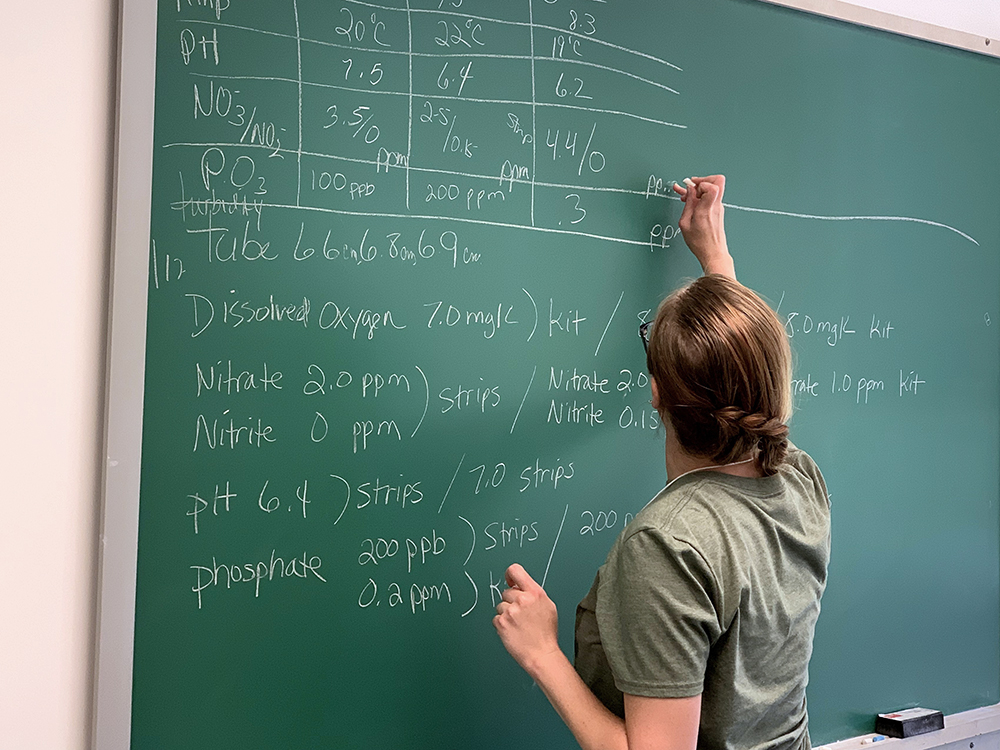 20°C 22°C 8.3
19°C
pH 7.5 6.4 6.2
NO3-/NO2- 3.5/0 ppm 2.5/0.15 ppm strip 4.4/0
PO3 100 ppb 200 ppm .3
turbidity
Tube 66cm, 6.8cm, 69cm
Dissolved Oxygen 7.0 mg/L ) kit / 8.0 mg/L kit
Nitrate 2.0 ppm ) strips / Nitrate 2.0 1.0 ppm kit
Nitrite 0 ppm Nitrite 0.15
pH 6.4 ) strips / 7.0 strips
phosphate 200 ppb ) strips / 200
0.2 ppm )